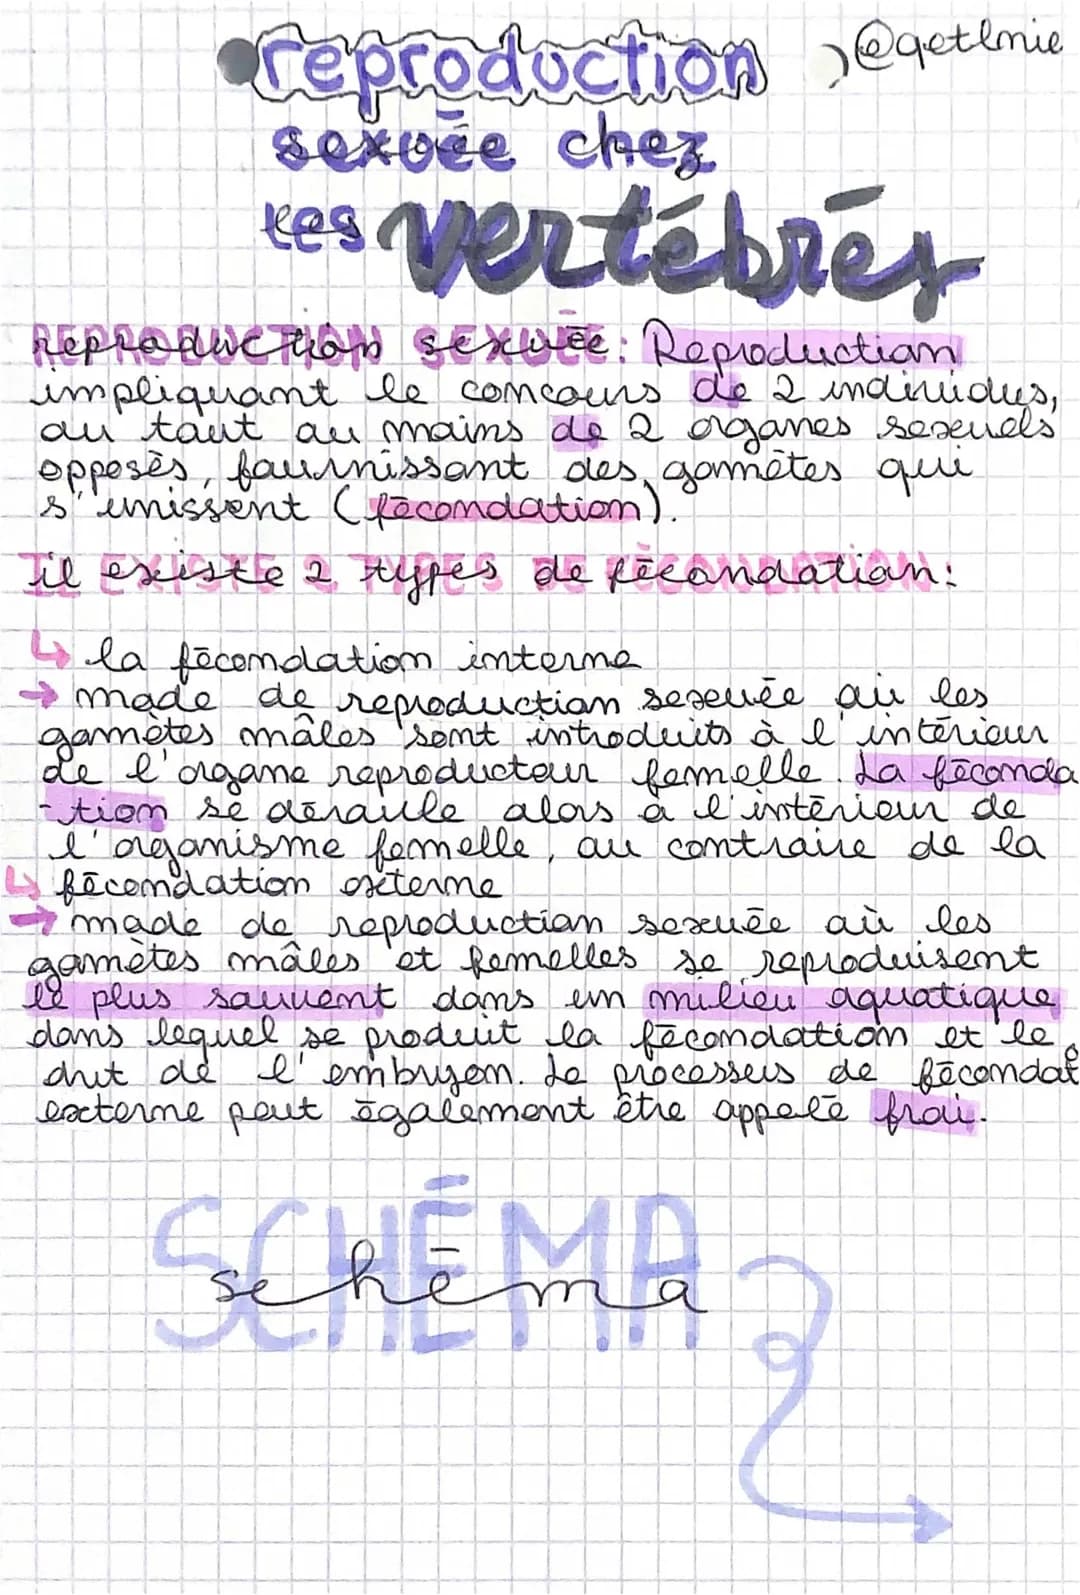 reproduction
@qetlmie
sexuée chez
les vertébrés
Reproduction sexuée : Reproduction
impliquant le concours de 2 individus,
ou tout au moins de 2 organes sexuels
opposés, fournissant des gamètes qui
s'unissent (fécondation).
Il existe 2 types de fécondation :
↳ la fécondation interne
→ mode de reproduction sexuée où les
gamètes mâles sont introduits à l'intérieur
de l'organe reproducteur femelle. La féconda
-tion se déroule alors à l'intérieur de
l'organisme femelle, au contraire de la
↳ fécondation externe
→ mode de reproduction sexuée où les
gamètes mâles et femelles se reproduisent
le plus souvent dans un milieu aquatique
dans lequel se produit la fécondation et le
dvt de l'embryon. Le processus de fécondat
externe peut également être appelé frai.
SCHÉMA
schéma